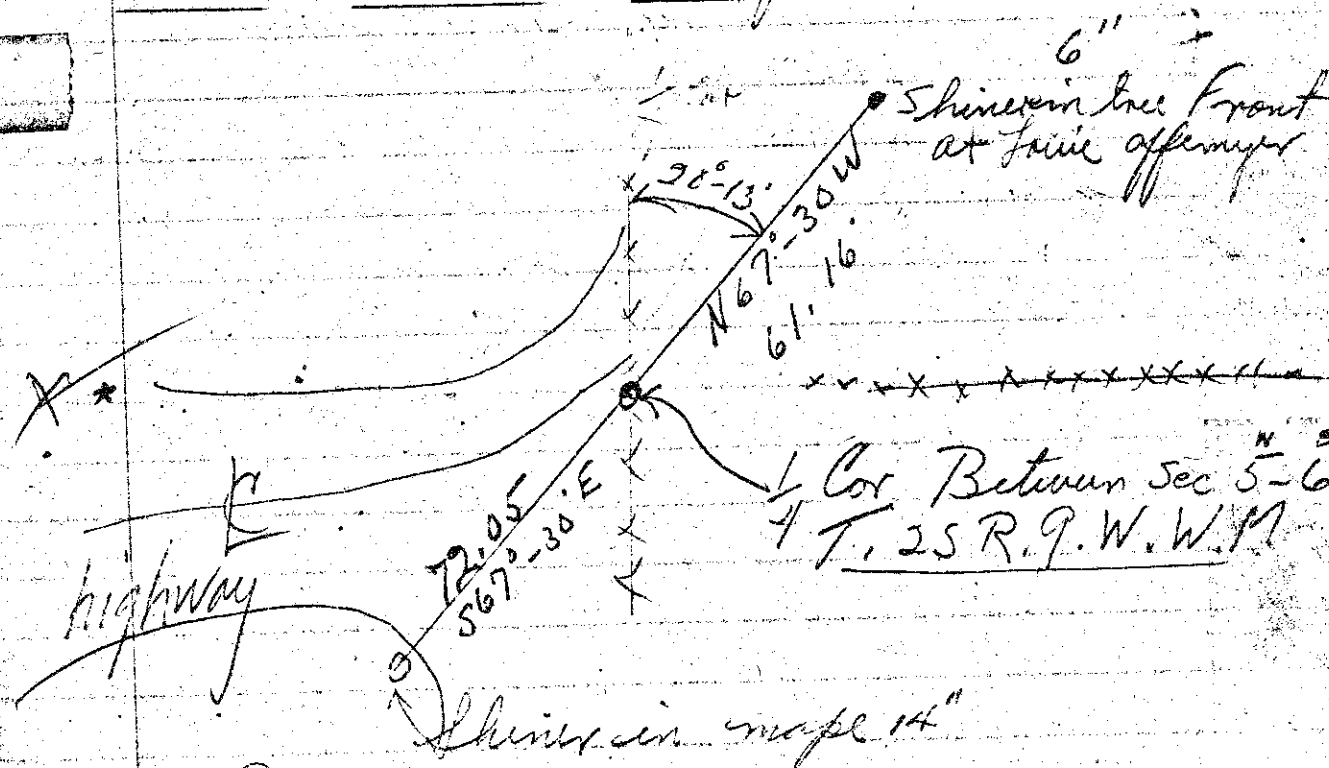 6"
Shiner in tree Front
at Louie
-13'
N67°-30W
61.16
1/4 Cor Between Sec 5-6
T. 2S R. 9. W. W. M
72.05
S67°-30'E
highway
Shiner in maple 14"